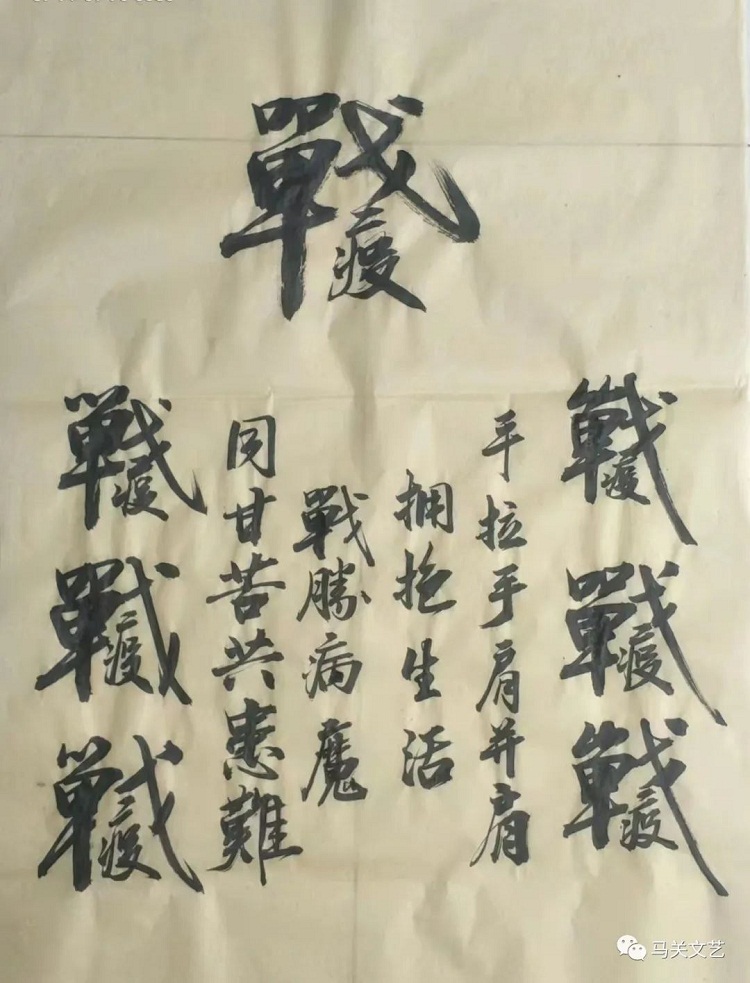 戰疫
戰疫
戰疫
戰疫
手拉手肩并肩
拥抱生活
戰勝病魔
同甘苦共患難
戰疫
戰疫
戰疫
马关文艺